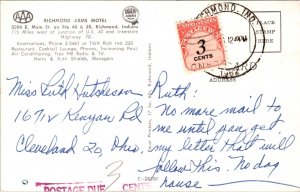 RICHMOND ARMS MOTEL
3284 E. Main St. on Rte 40 & 35, Richmond, Indiana
1½ miles west of junction of U.S. 40 and Interstate
Highway 70.
Reservations, Phone 2-5661 or TWX Rich Ind 220
Restaurant, Cocktail Lounge, Phones, Swimming Pool,
Air-Conditioning, Free FM Radio & TV.
Harry & Ruth Shields, Managers
RICHMOND, IND.
12
PM
3
CENTS
PLACE
STAMP
HERE
ADDRESS
Miss Ruth Hutcheson
1671½ Kenyon Rd
Cleveland 20, Ohio,
Ruth:
No more mail to
me until you get
my letter that will
follow this. No dog
house —
3
POSTAGE DUE CENTS